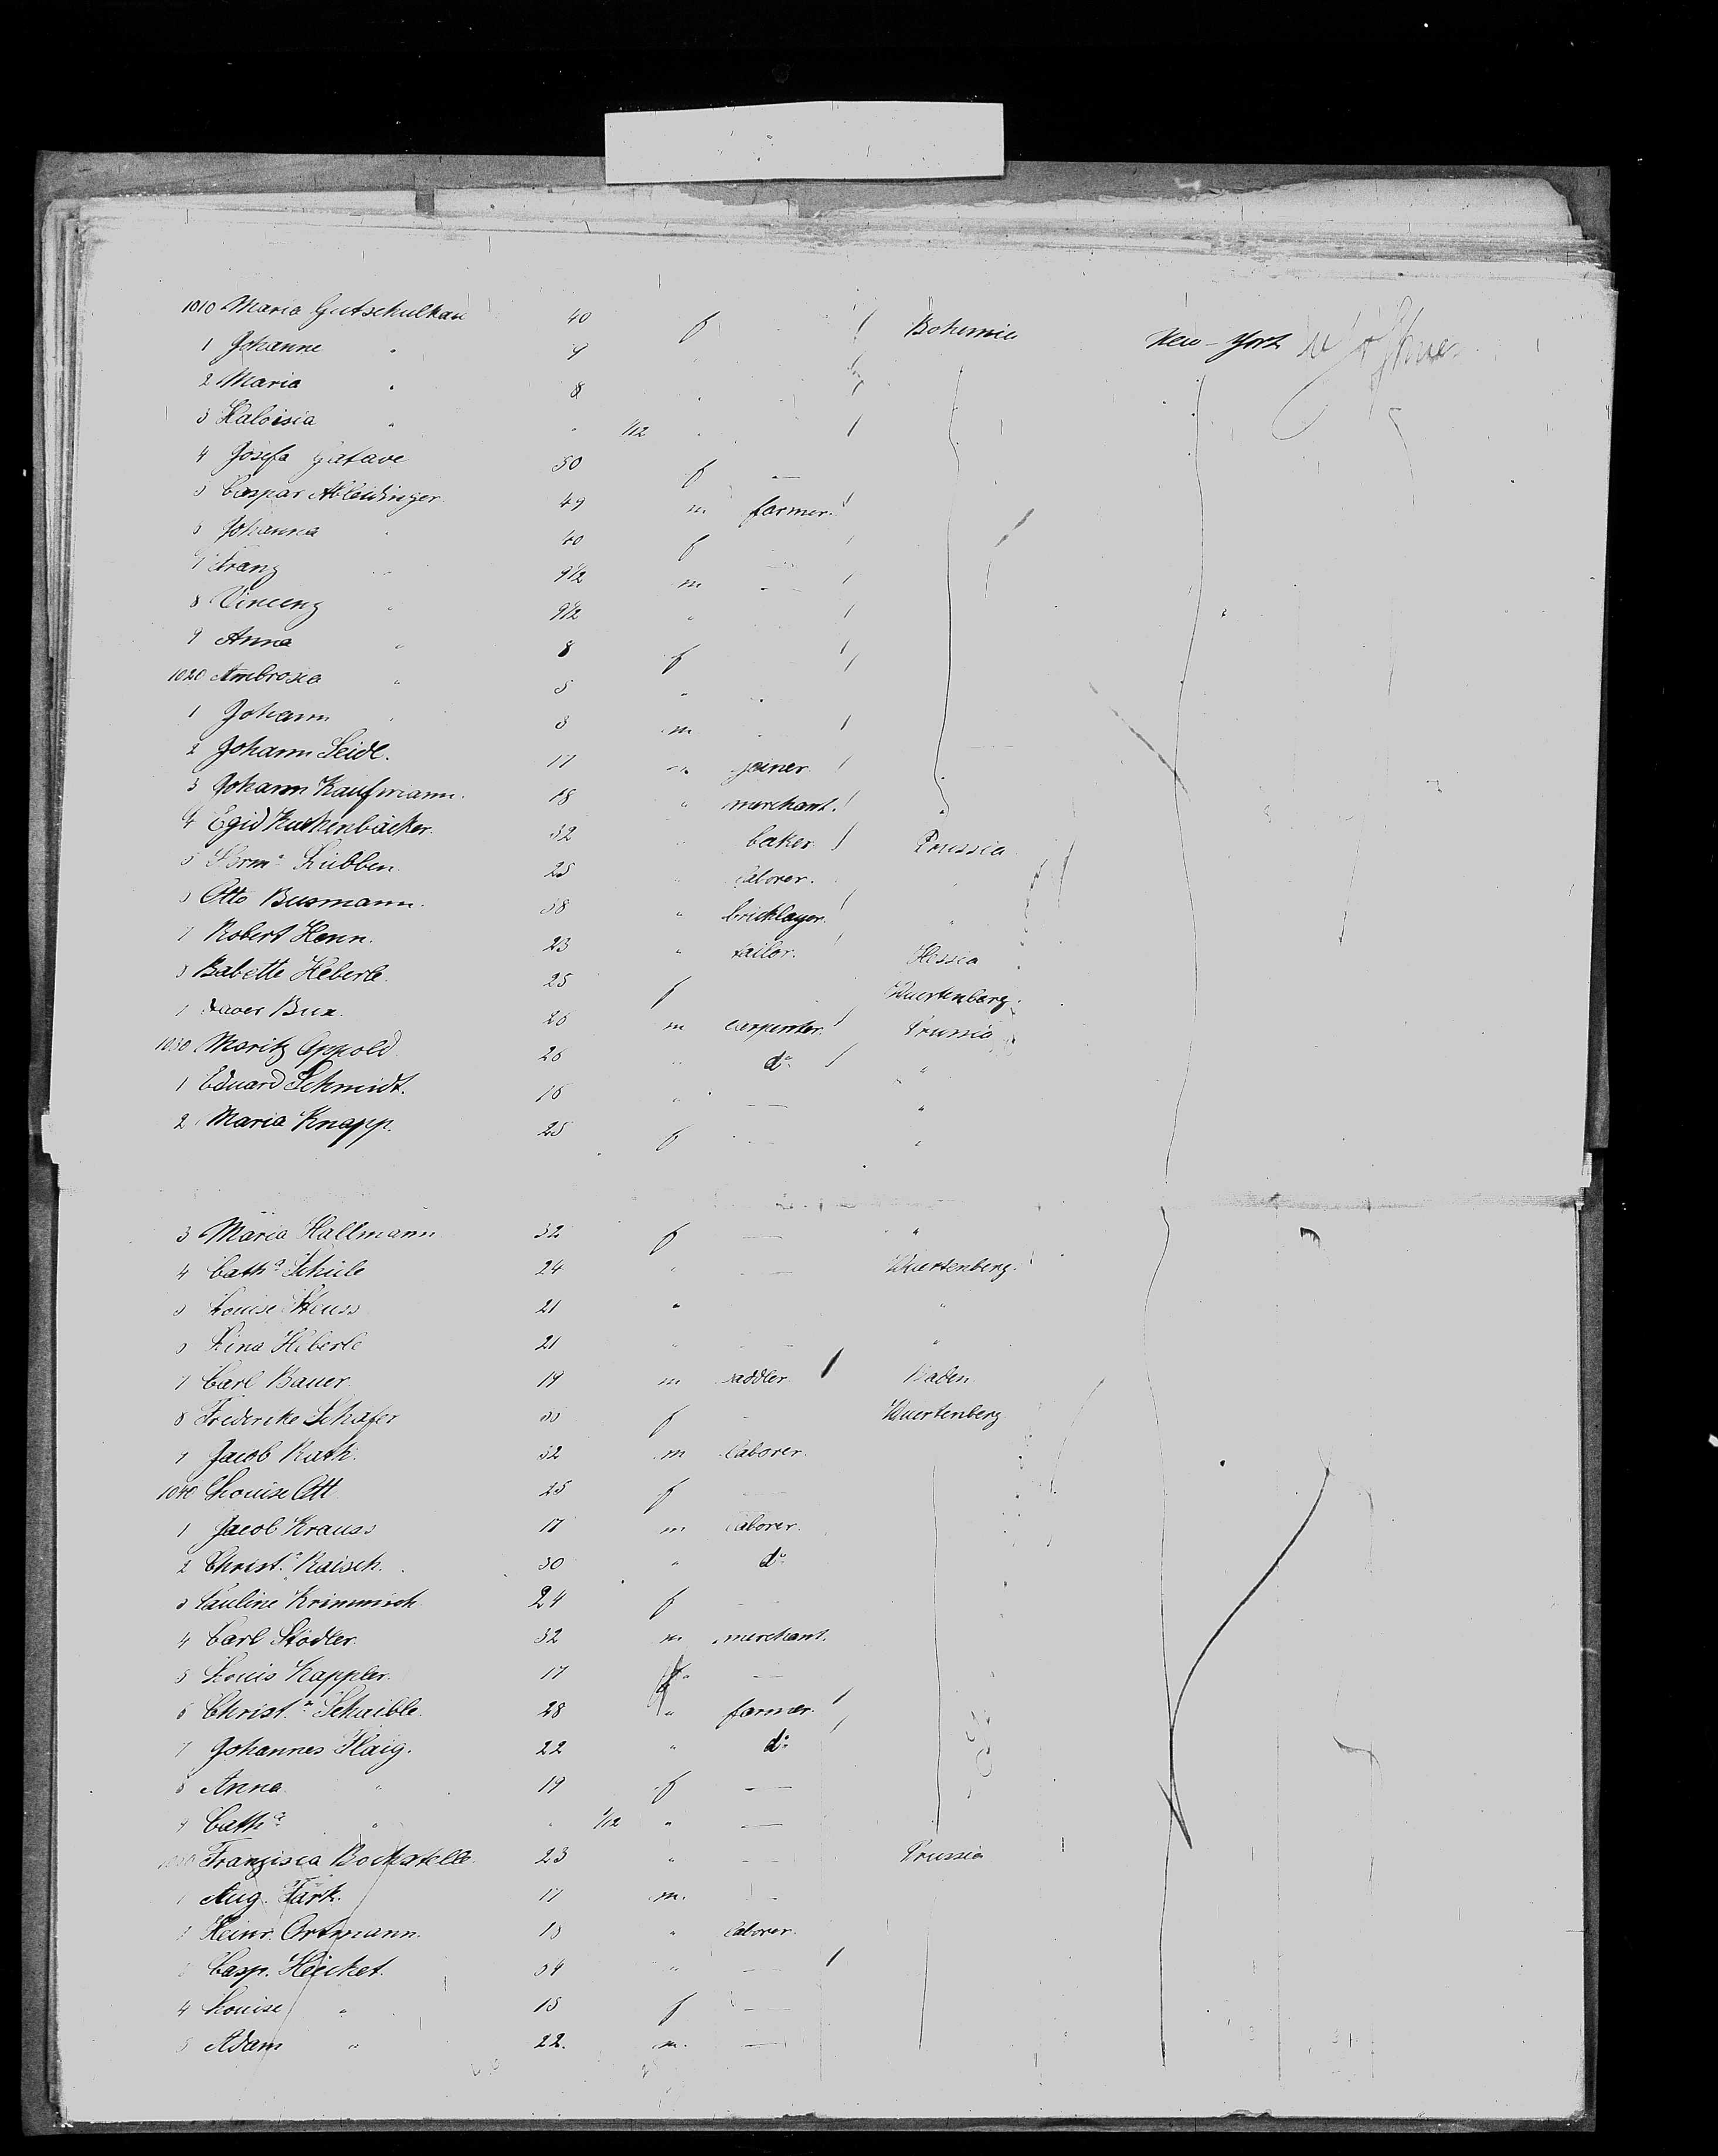 1010 Maria Gutschulhau 40 f / Bohemia New-York
1 Johanne " 9 /
2 Maria " 8 /
3 Haloisia " " 1/12 /
4 Josefa 50 f —
5 Caspar Ableidinger 49 m farmer. /
6 Johanna " 40 f — /
7 Franz " 9 1/2 m — /
8 Vincenz " 9 1/2 " /
9 Anna " 8 f /
1020 Ambrosia " 5 "
1 Johann " 3 m /
2 Johann Seidl. 17 " joiner /
3 Johann Kaufmann. 18 " merchant. /
4 Egid Kuchenbäcker. 32 baker / Prussia
5 Herm.n Lübben 25 " laborer. "
6 Otto Busmann. 38 " bricklayer. / "
7 Robert Henn. 23 " tailor. / Hessia
8 Babette Heberle. 25 f Wuertenberg.
9 Xaver Bux. 26 m carpenter. / Prussia
1030 Moritz Oppold 26 " do. / "
1 Eduard Schmidt. 16 " — "
2 Maria Knapp. 25 f — "
3 Maria Hallmann 32 f — "
4 Cath.a Schüle 24 " — Wuertenberg.
5 Louise 21 " "
6 Lina Heberle 21 " — "
7 Carl Bauer. 19 m saddler / Baden
8 Frederike Schäfer f - Wuertenberg
9 Jacob Rath. 32 m laborer.
1040 Louise Ott 25 f —
1 Jacob Krauss 17 m laborer.
2 Christ. Raisch. 30 " do.
3 Pauline 24 f —
4 Carl Stodler. 32 m merchant.
5 Louis Kappler. 17 —
6 Christ.n Schaible. 28 " farmer. /
7 Johannes Haig. 22 " do. /
8 Anna " 19 f —
9 Cath.a " " 1/12 " —
1050 Franzisca 23 " — Prussia
1 Aug. Fark. 17 m.
2 Heinr. Ortmann. 18 " laborer.
3 Casp. 54 " — /
4 Louise " 15 f —
5 Adam " 22. m. —